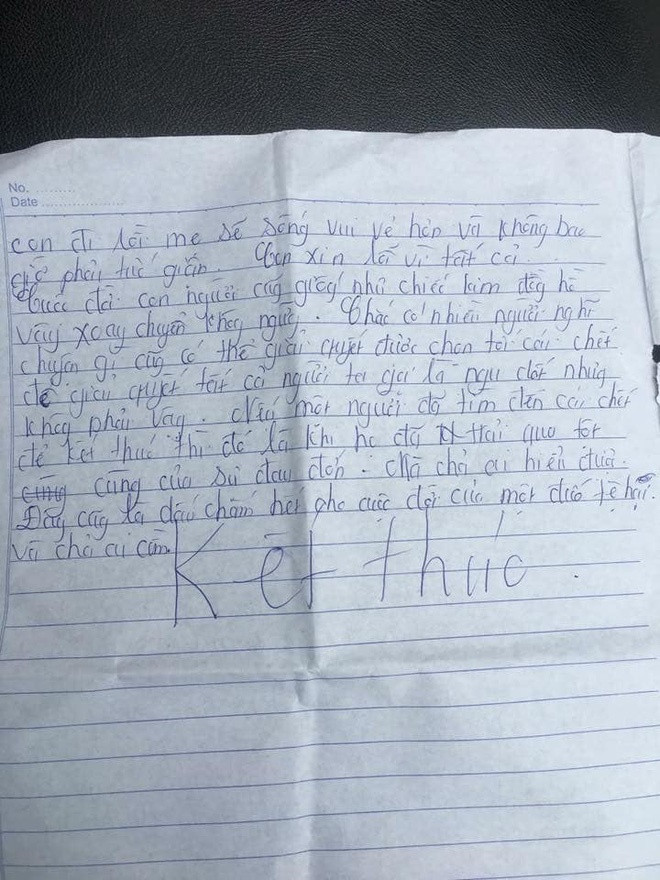 No. ..........
Date ....................
con đi rồi mẹ sẽ sống vui vẻ hơn và không bao
giờ phải tức giận. Con xin lỗi vì tất cả.
Cuộc đời con người cũg giốg như chiếc kim đồg hồ
vậy xoay chuyển khôg ngừg. Chắc có nhiều người nghĩ
chuyện gì cũg có thể giải quyết được chọn tới cái chết
để giải quyết tất cả người ta gọi là ngu dốt nhưg
khôg phải vậy. Nếu một người đã tìm đến cái chết
để kết thúc thì đó là khi họ đã trải qua tột
cùng của sự đau đớn. Mà chả ai hiểu được.
Đây cũg là dấu chấm hết cho cuộc đời của một đứa tệ hại.
và chả ai cần.
Kết thúc